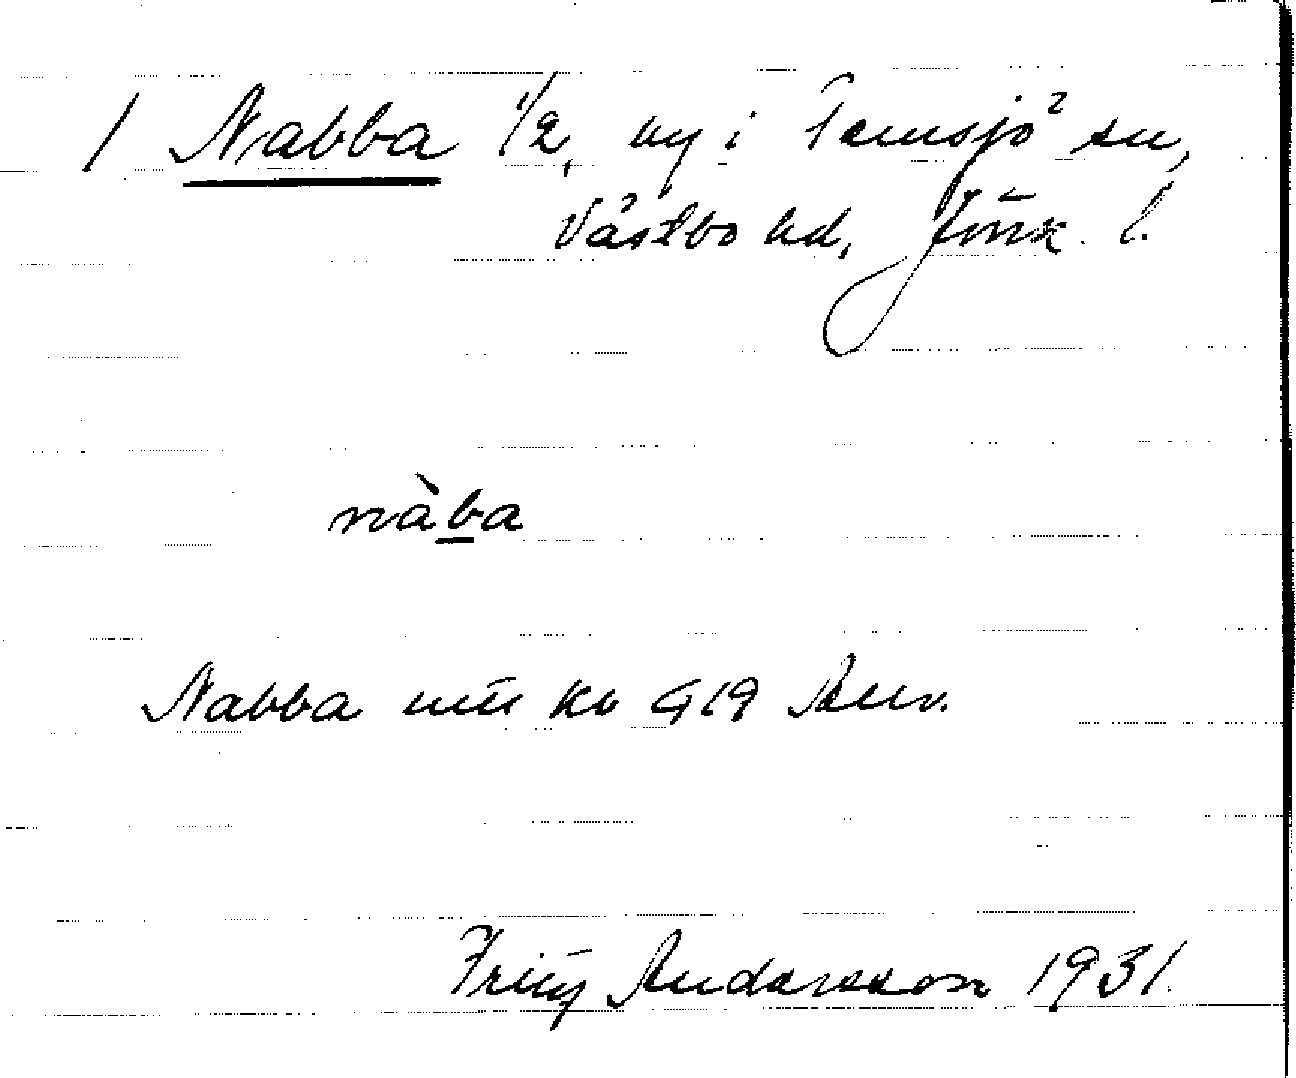 1 Nabba 1/2, by i Femsjö sn,
Västbo hd, Jönk. l.
nàba
Nabba mtl kb 919 Anv.
Fritz Andersson 1931.